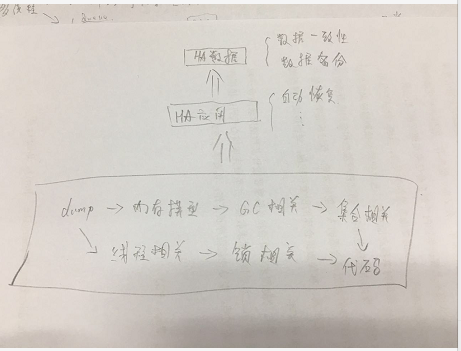 HA数据
数据一致性
数据备份
HA应用
自动恢复
⋮
dump → 内存模型 → GC相关 → 集合相关
线程相关 → 锁相关 → 代码